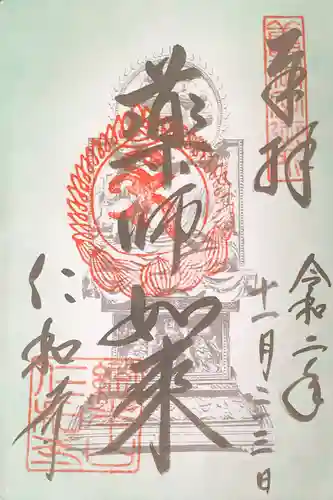 奉拝
令和二年
十一月二十三日
薬師如来
仁和寺